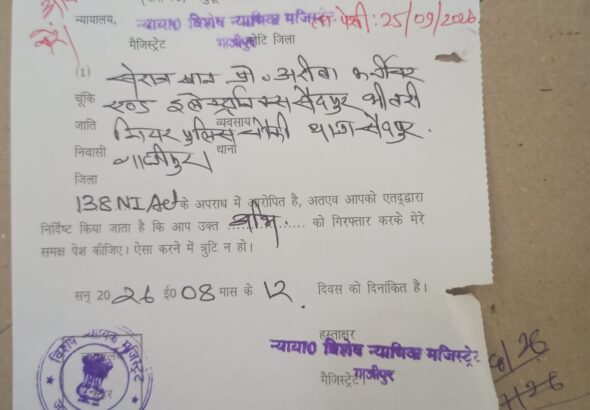 न्यायालय, न्याया0 विशेष न्यायिक मजिस्ट्रेट पेशी: 25/09/2026
मैजिस्ट्रेट गाजीपुर जिला
(1) सेराज खान प्रो० अरीबा फर्नीचर
चूंकि एण्ड इलेक्ट्रॉनिक्स सैदपुर भीतरी
जाति व्यवसाय
निवासी नियर पुलिस चौकी थाना सैदपुर.
थाना
गाजीपुर।
जिला
138 NI Act के अपराध में आरोपित है, अतएव आपको एतद्द्वारा
निर्दिष्ट किया जाता है कि आप उक्त ............ को गिरफ्तार करके मेरे
समक्ष पेश कीजिए। ऐसा करने में त्रुटि न हो।
सन् 2026 ई0 08 मास के 12 दिवस को दिनांकित है।
हस्ताक्षर
न्याया0 विशेष न्यायिक मजिस्ट्रेट
मैजिस्ट्रेट गाजीपुर
विशेष न्यायिक मजिस्ट्रेट